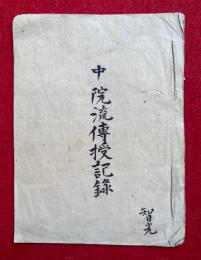 中院流傳授記錄
智光